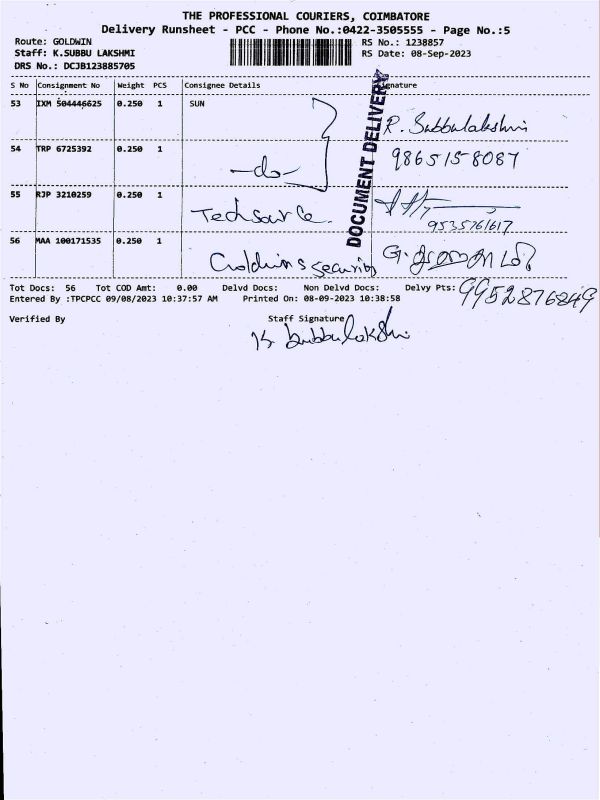 THE PROFESSIONAL COURIERS, COIMBATORE
Delivery Runsheet - PCC - Phone No.:0422-3505555 - Page No.:5
Route: GOLDWIN
RS No.: 1238857
Staff: K.SUBBU LAKSHMI
RS Date: 08-Sep-2023
DRS No.: DCJB123885705
S No Consignment No Weight PCS Consignee Details Signature
DOCUMENT DELIVERY
53 IXM 504446625 0.250 1 SUN
R. Subbulakshmi
54 TRP 6725392 0.250 1 -do- 9865158087
55 RJP 3210259 0.250 1 Techsource.
9535761617
56 MAA 100171535 0.250 1 Goldwins security G.
Tot Docs: 56 Tot COD Amt: 0.00 Delvd Docs: Non Delvd Docs: Delvy Pts: 9952876849
Entered By :TPCPCC 09/08/2023 10:37:57 AM Printed On: 08-09-2023 10:38:58
Verified By Staff Signature
K. Subbulakshmi